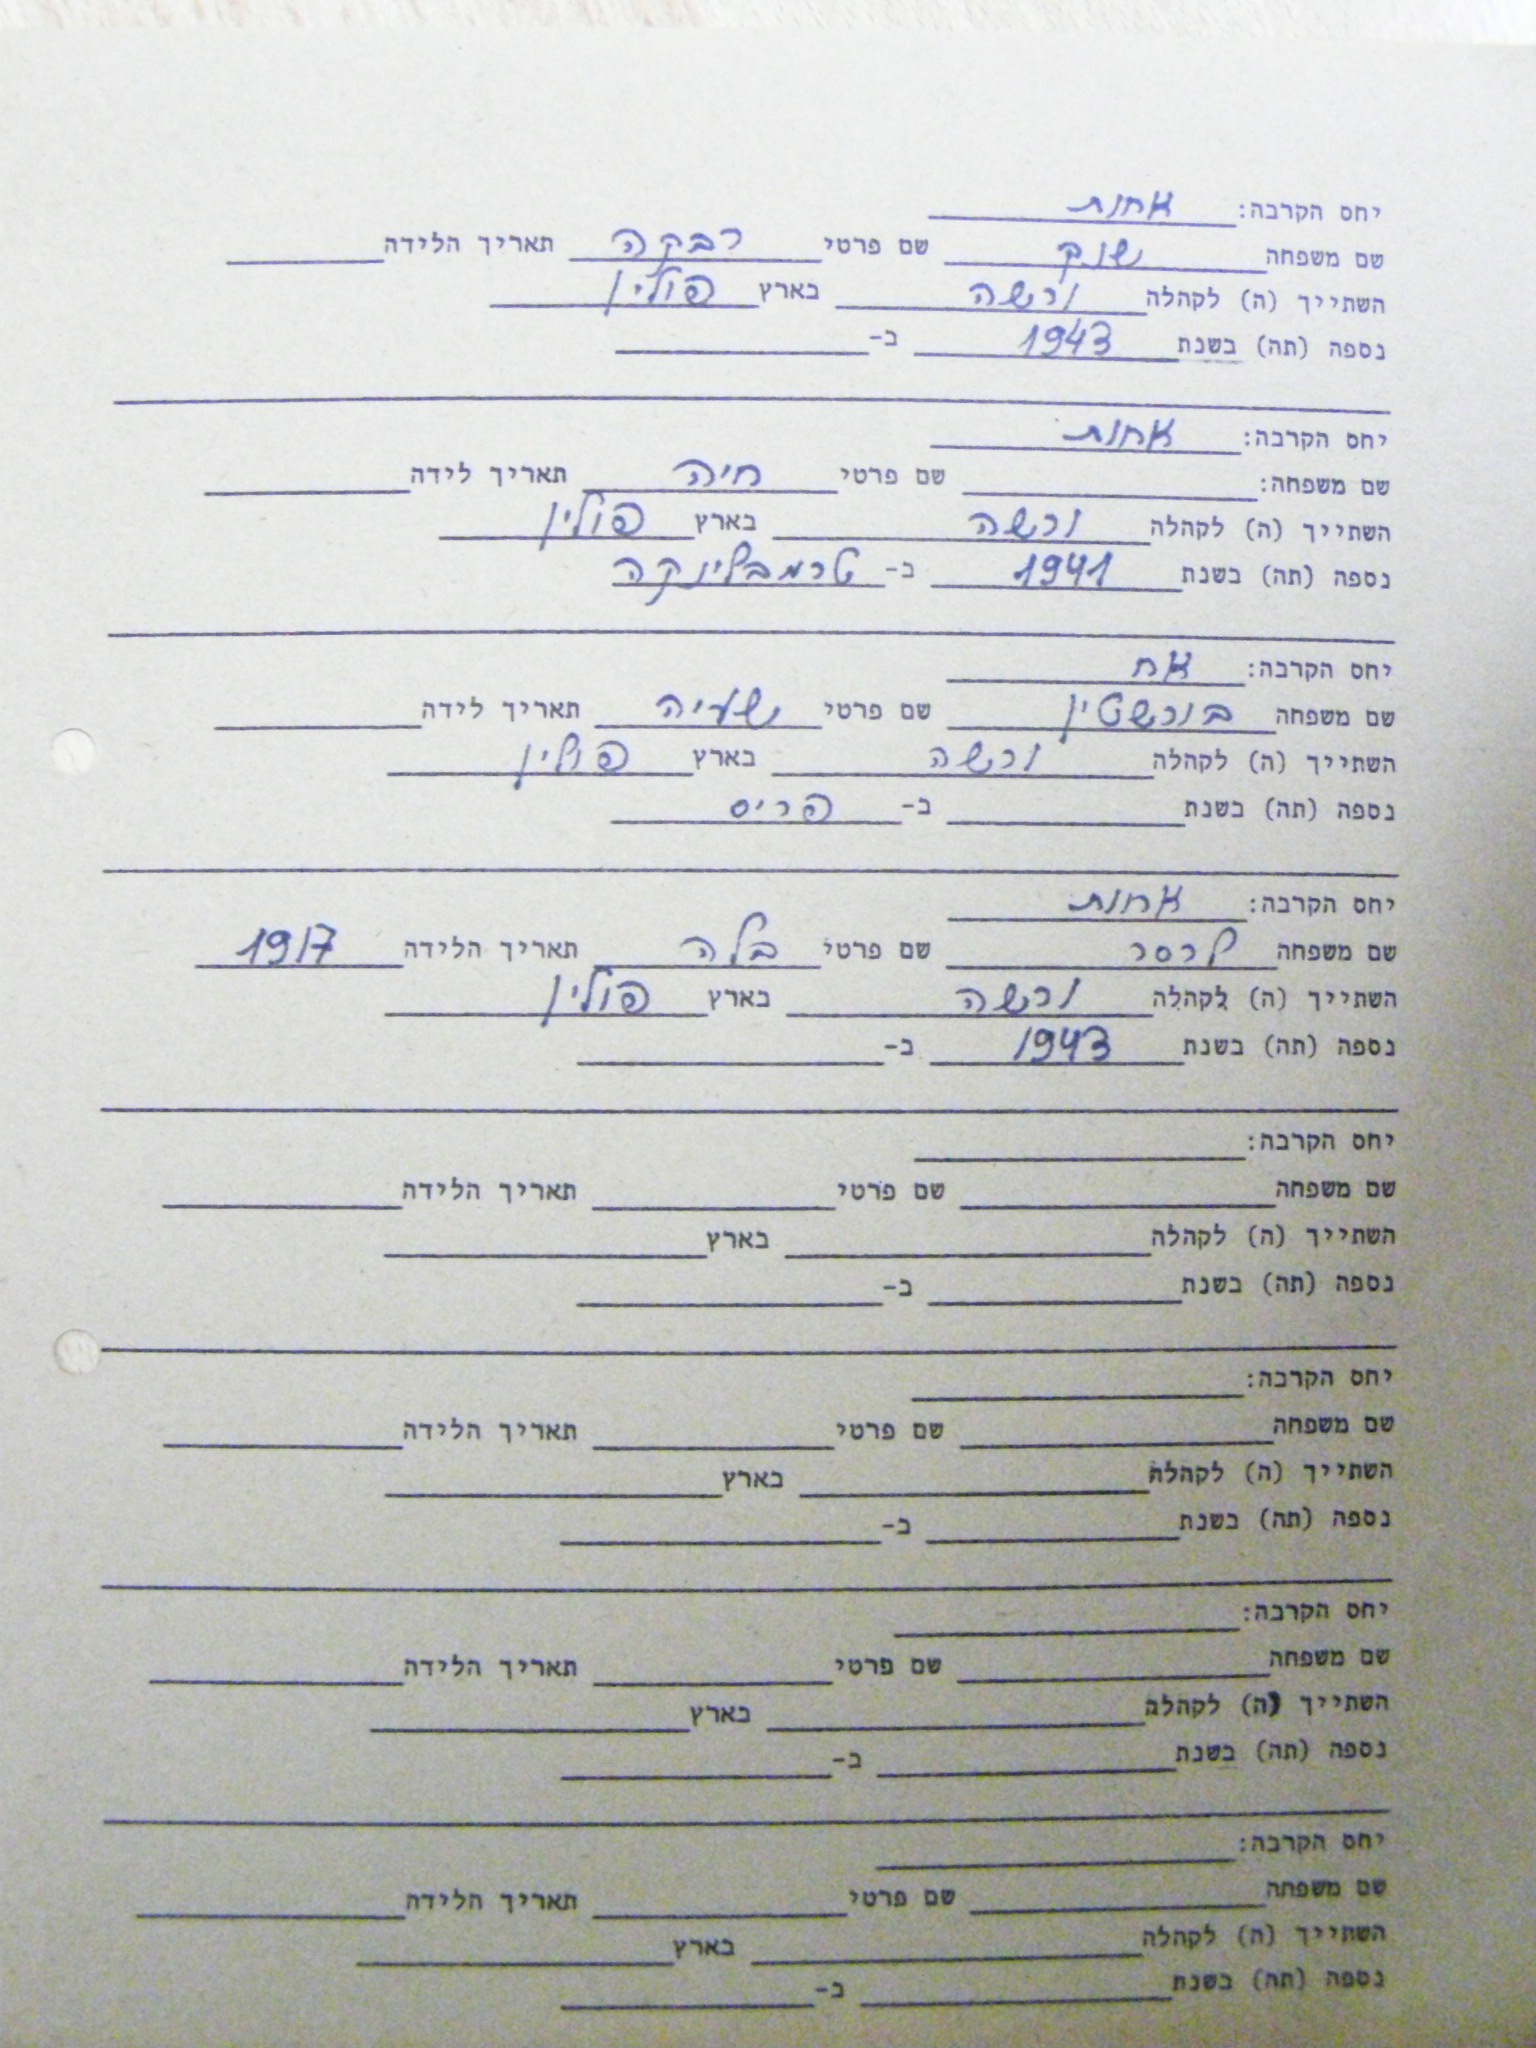 יחס הקרבה: אחות
שם משפחה שוק שם פרטי רבקה תאריך הלידה
השתייך (ה) לקהלה ורשה בארץ פולין
נספה (תה) בשנת 1943 ב-
יחס הקרבה: אחות
שם משפחה: שם פרטי חיה תאריך לידה
השתייך (ה) לקהלה ורשה בארץ פולין
נספה (תה) בשנת 1941 ב- טרמבלינקה
יחס הקרבה: אח
שם משפחה בורשטין שם פרטי ישעיה תאריך לידה
השתייך (ה) לקהלה ורשה בארץ פולין
נספה (תה) בשנת ב- פריס
יחס הקרבה: אחות
שם משפחה לרסר שם פרטי בלה תאריך הלידה 1917
השתייך (ה) לקהלה ורשה בארץ פולין
נספה (תה) בשנת 1943 ב-
יחס הקרבה:
שם משפחה שם פרטי תאריך הלידה
השתייך (ה) לקהלה בארץ
נספה (תה) בשנת ב-
יחס הקרבה:
שם משפחה שם פרטי תאריך הלידה
השתייך (ה) לקהלה בארץ
נספה (תה) בשנת ב-
יחס הקרבה:
שם משפחה שם פרטי תאריך הלידה
השתייך (ה) לקהלה בארץ
נספה (תה) בשנת ב-
יחס הקרבה:
שם משפחה שם פרטי תאריך הלידה
השתייך (ה) לקהלה בארץ
נספה (תה) בשנת ב-